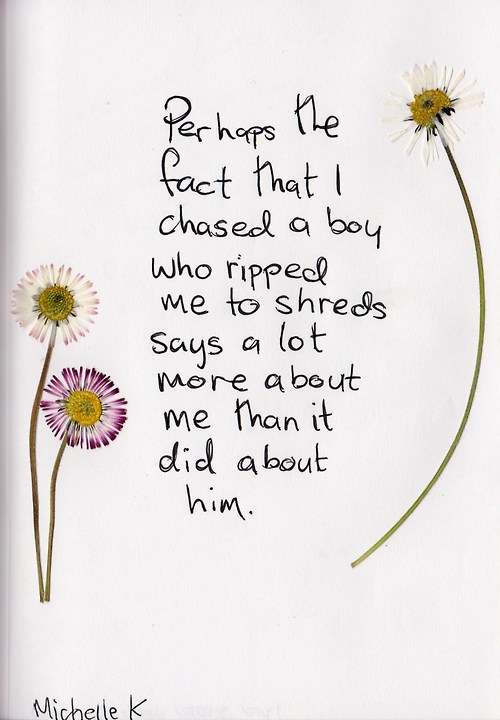 Perhaps the
fact that I
chased a boy
who ripped
me to shreds
says a lot
more about
me than it
did about
him.
Michelle K